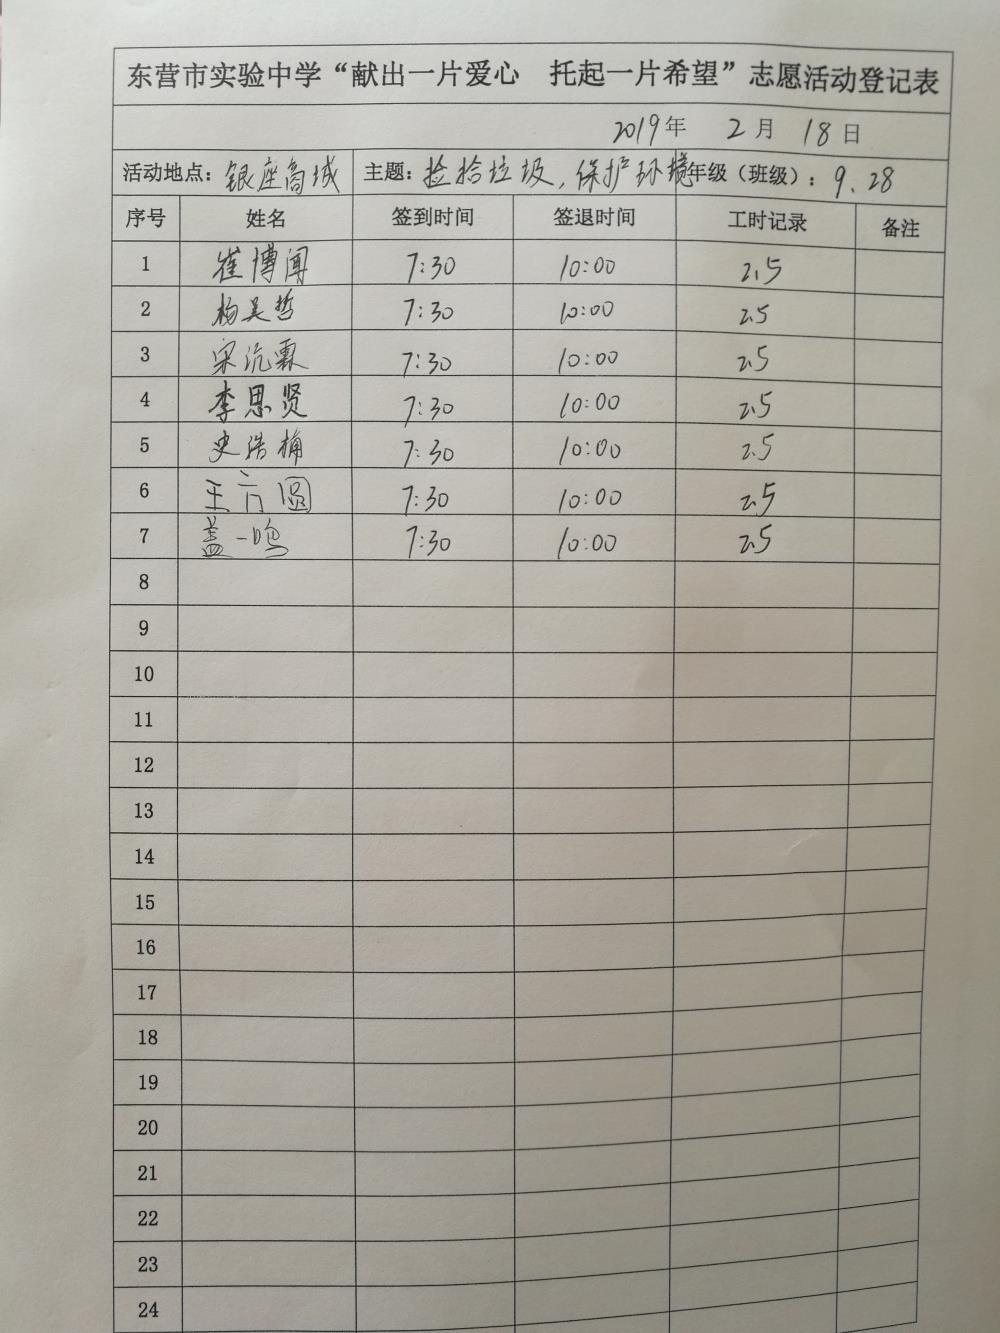 东营市实验中学“献出一片爱心 托起一片希望”志愿活动登记表
2019年 2月 18日
活动地点：银座商城 主题：捡拾垃圾，保护环境 年级（班级）：9.28
序号 姓名 签到时间 签退时间 工时记录 备注
1 崔博闻 7:30 10:00 2.5
2 杨昊哲 7:30 10:00 2.5
3 宋沅霖 7:30 10:00 2.5
4 李思贤 7:30 10:00 2.5
5 史浩楠 7:30 10:00 2.5
6 王方圆 7:30 10:00 2.5
7 盖一鸣 7:30 10:00 2.5
8
9
10
11
12
13
14
15
16
17
18
19
20
21
22
23
24